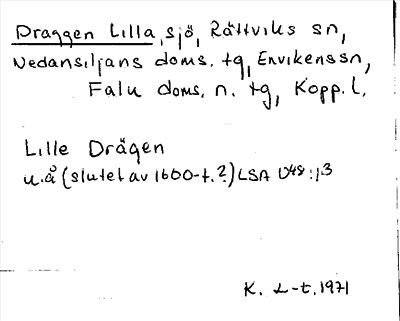 Draggen Lilla, sjö, Rättviks sn,
Nedansiljans doms. tg, Envikens sn,
Falu doms. n. tg, Kopp. l.
Lille Drägen
u.å (slutet av 1600-t.?) LSA U48:13
K. L-t. 1971